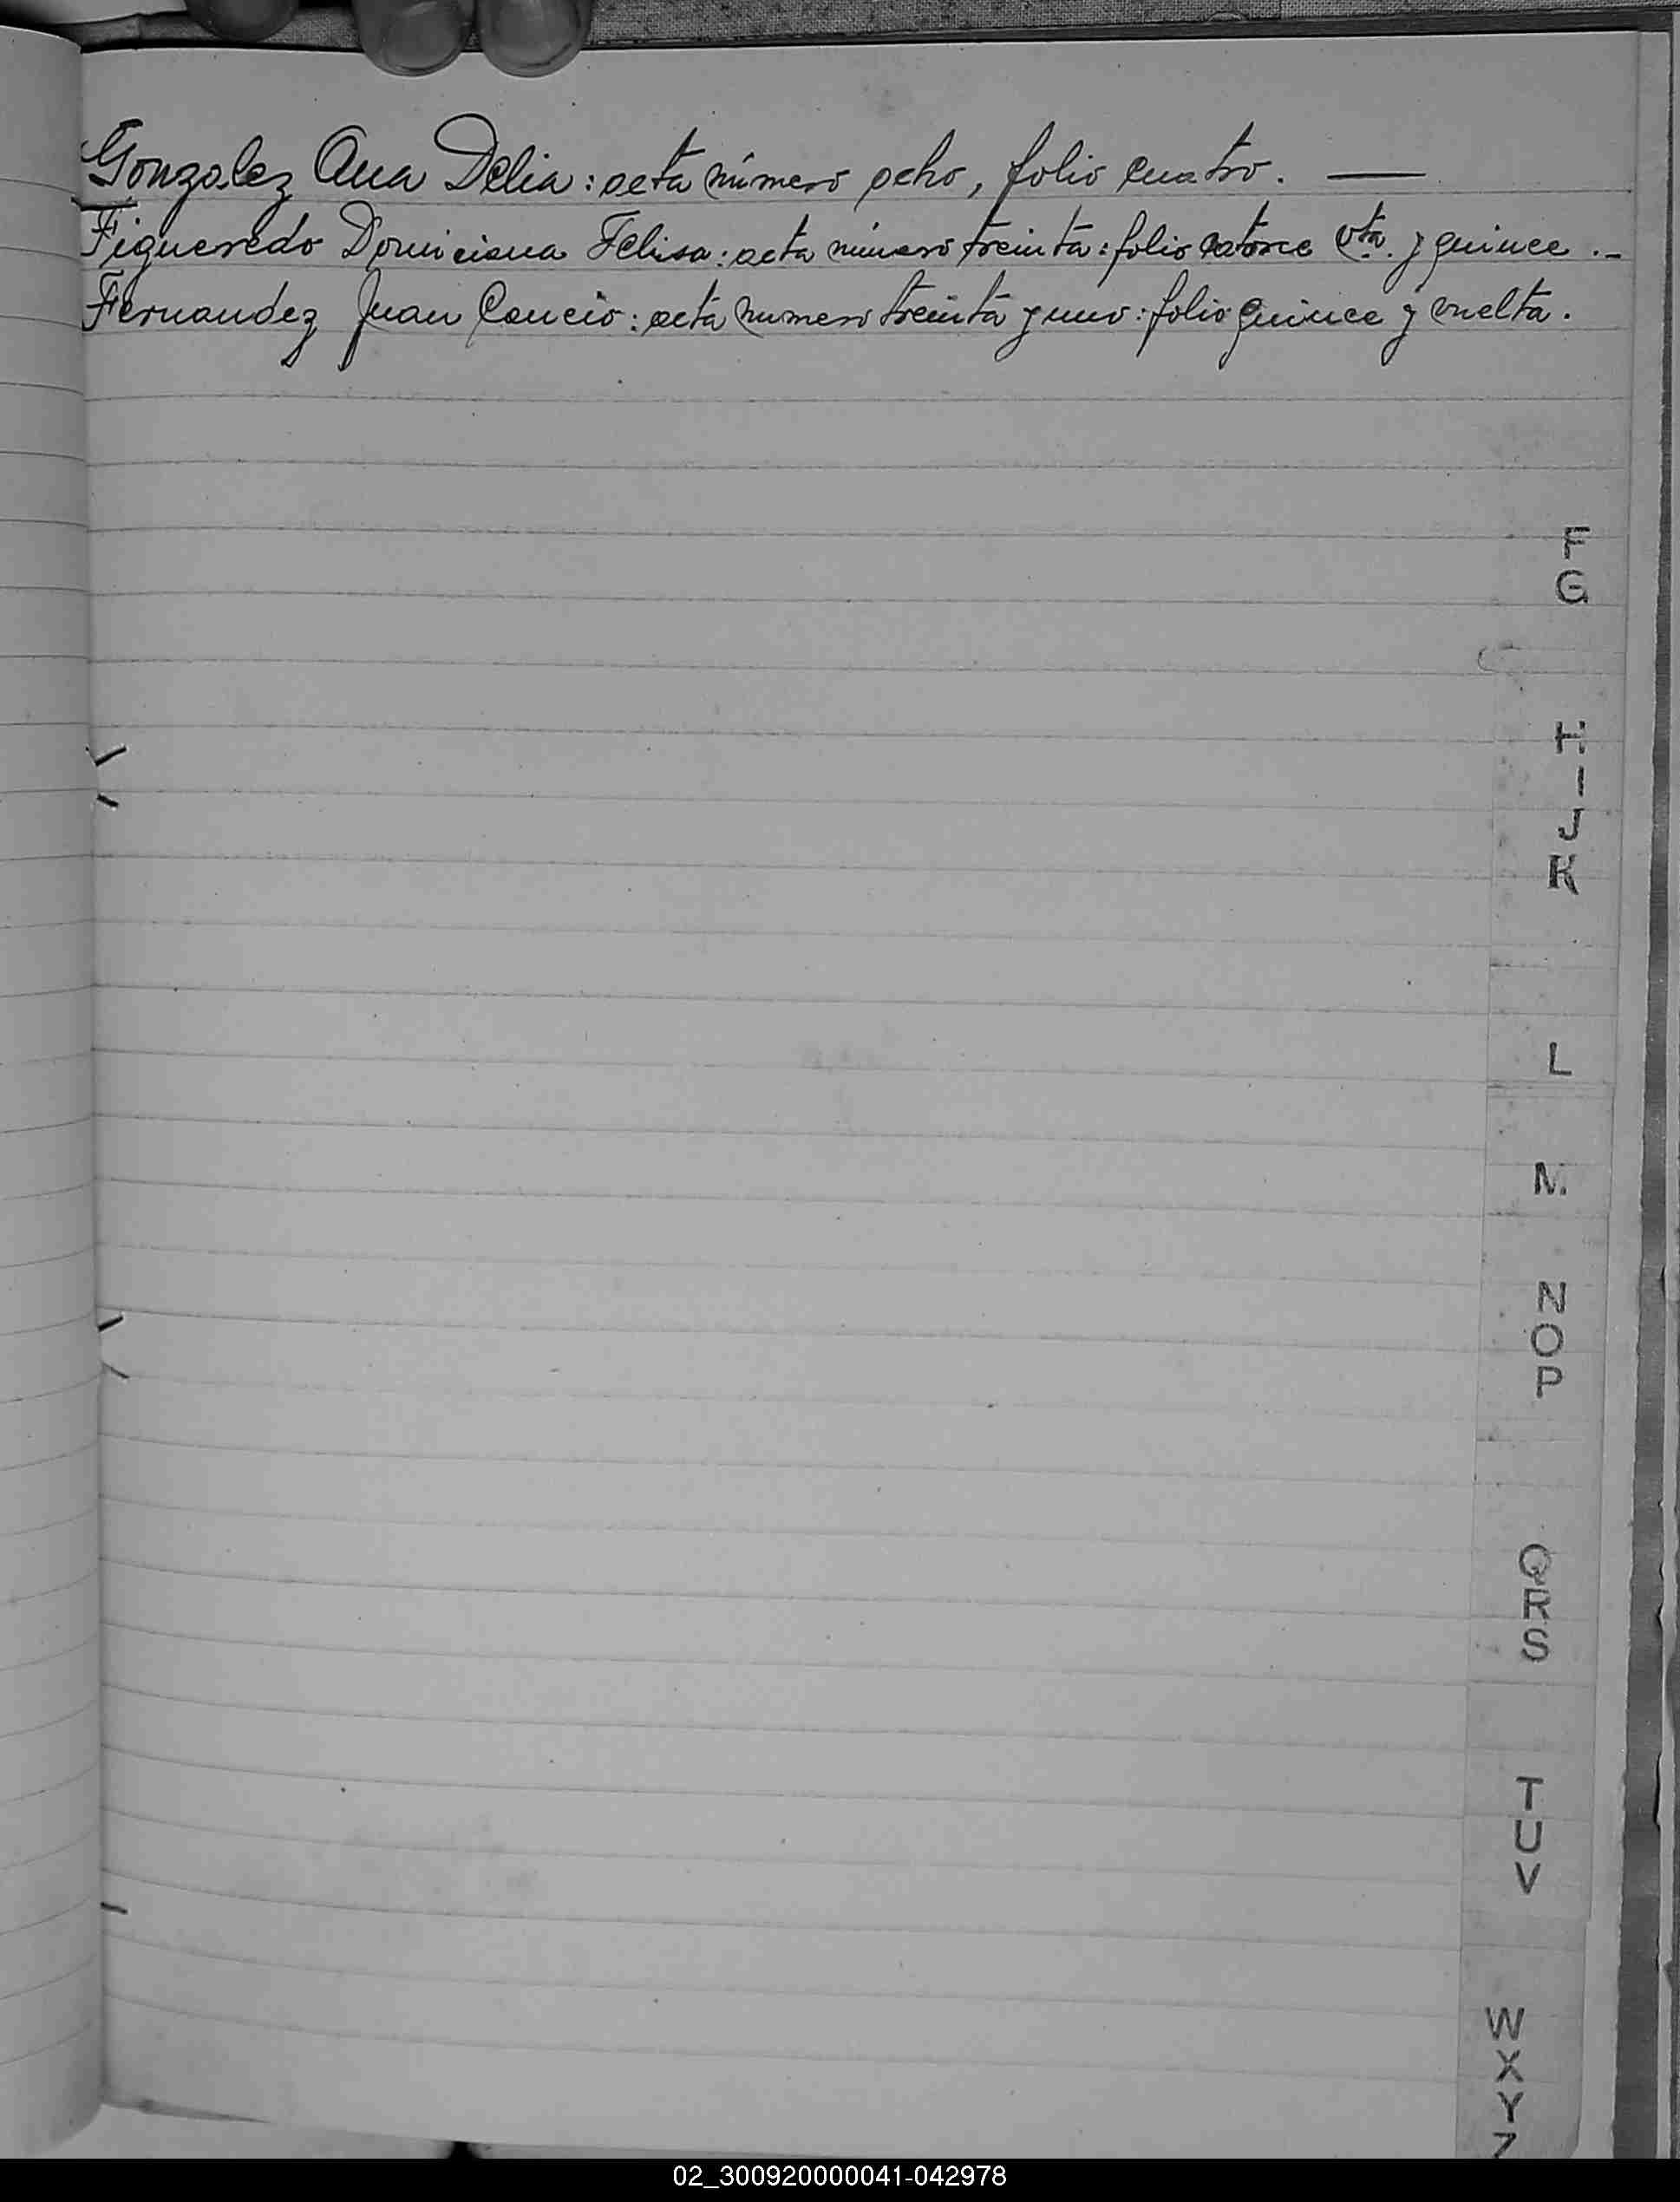 Gonzalez Ana Delia: acta número ocho, folio cuatro. —
Figueredo Domiciana Felisa: acta número treinta: folio catorce vta. y quince .-
Fernandez Juan Cancio: acta numero treinta y uno: folio quince y vuelta.
F
G
H
I
J
K
L
M
N
O
P
Q
R
S
T
U
V
W
X
Y
Z
02_300920000041-042978